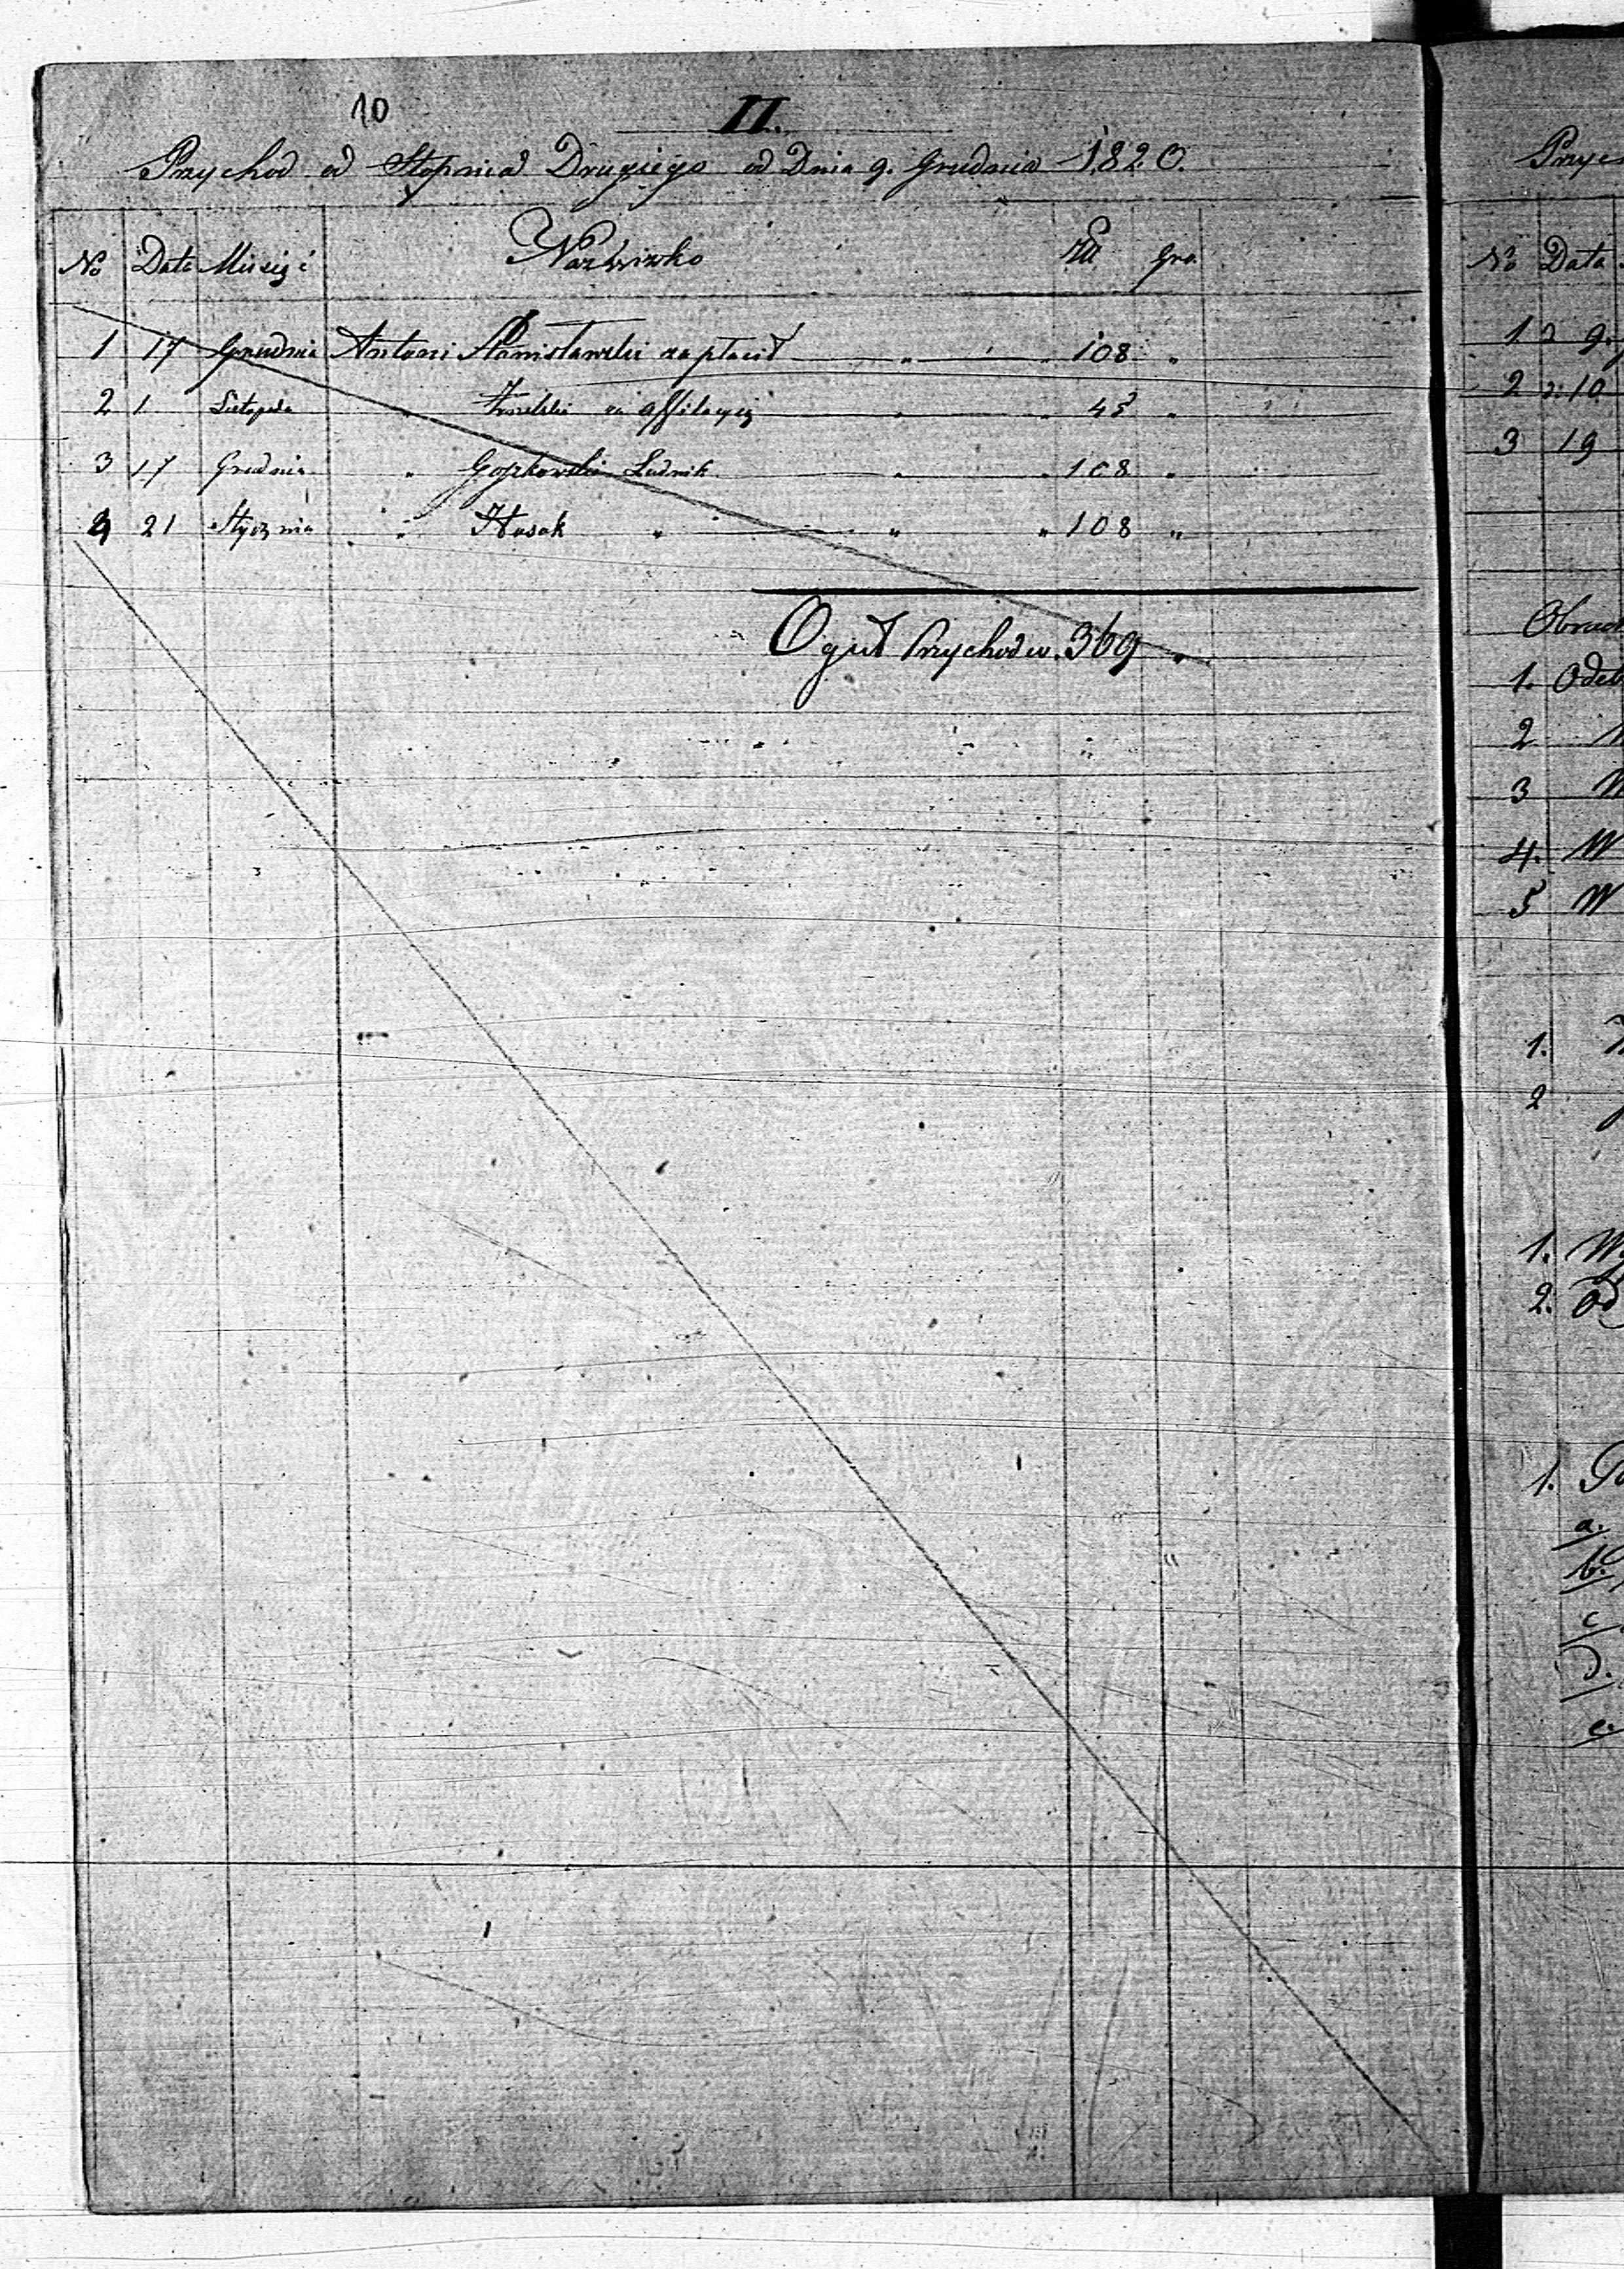 10
II.
Przychod od Stopnia Drugiego od Dnia 9. Grudnia 1820.
No Data Miesiąc Nazwizko Złł Gro.
1 17 Grudnia Antoni Stanisławski zapłacił " " 108 "
2 1 Listopada " za affiliacyią " " 45 "
3 17 Grudnia " Gozkowski Ludwik " " 108 "
4 21 Stycznia " Husak " " " 108 "
Oguł Przychodu. 369 "
Przyc
No Data
1 d 9.
2 d. 10
3 19
1. Odeb
2
3
4. W
5 W
1.
2
1. Wy
2. Od
1.
a.
b.
c
d.
e.